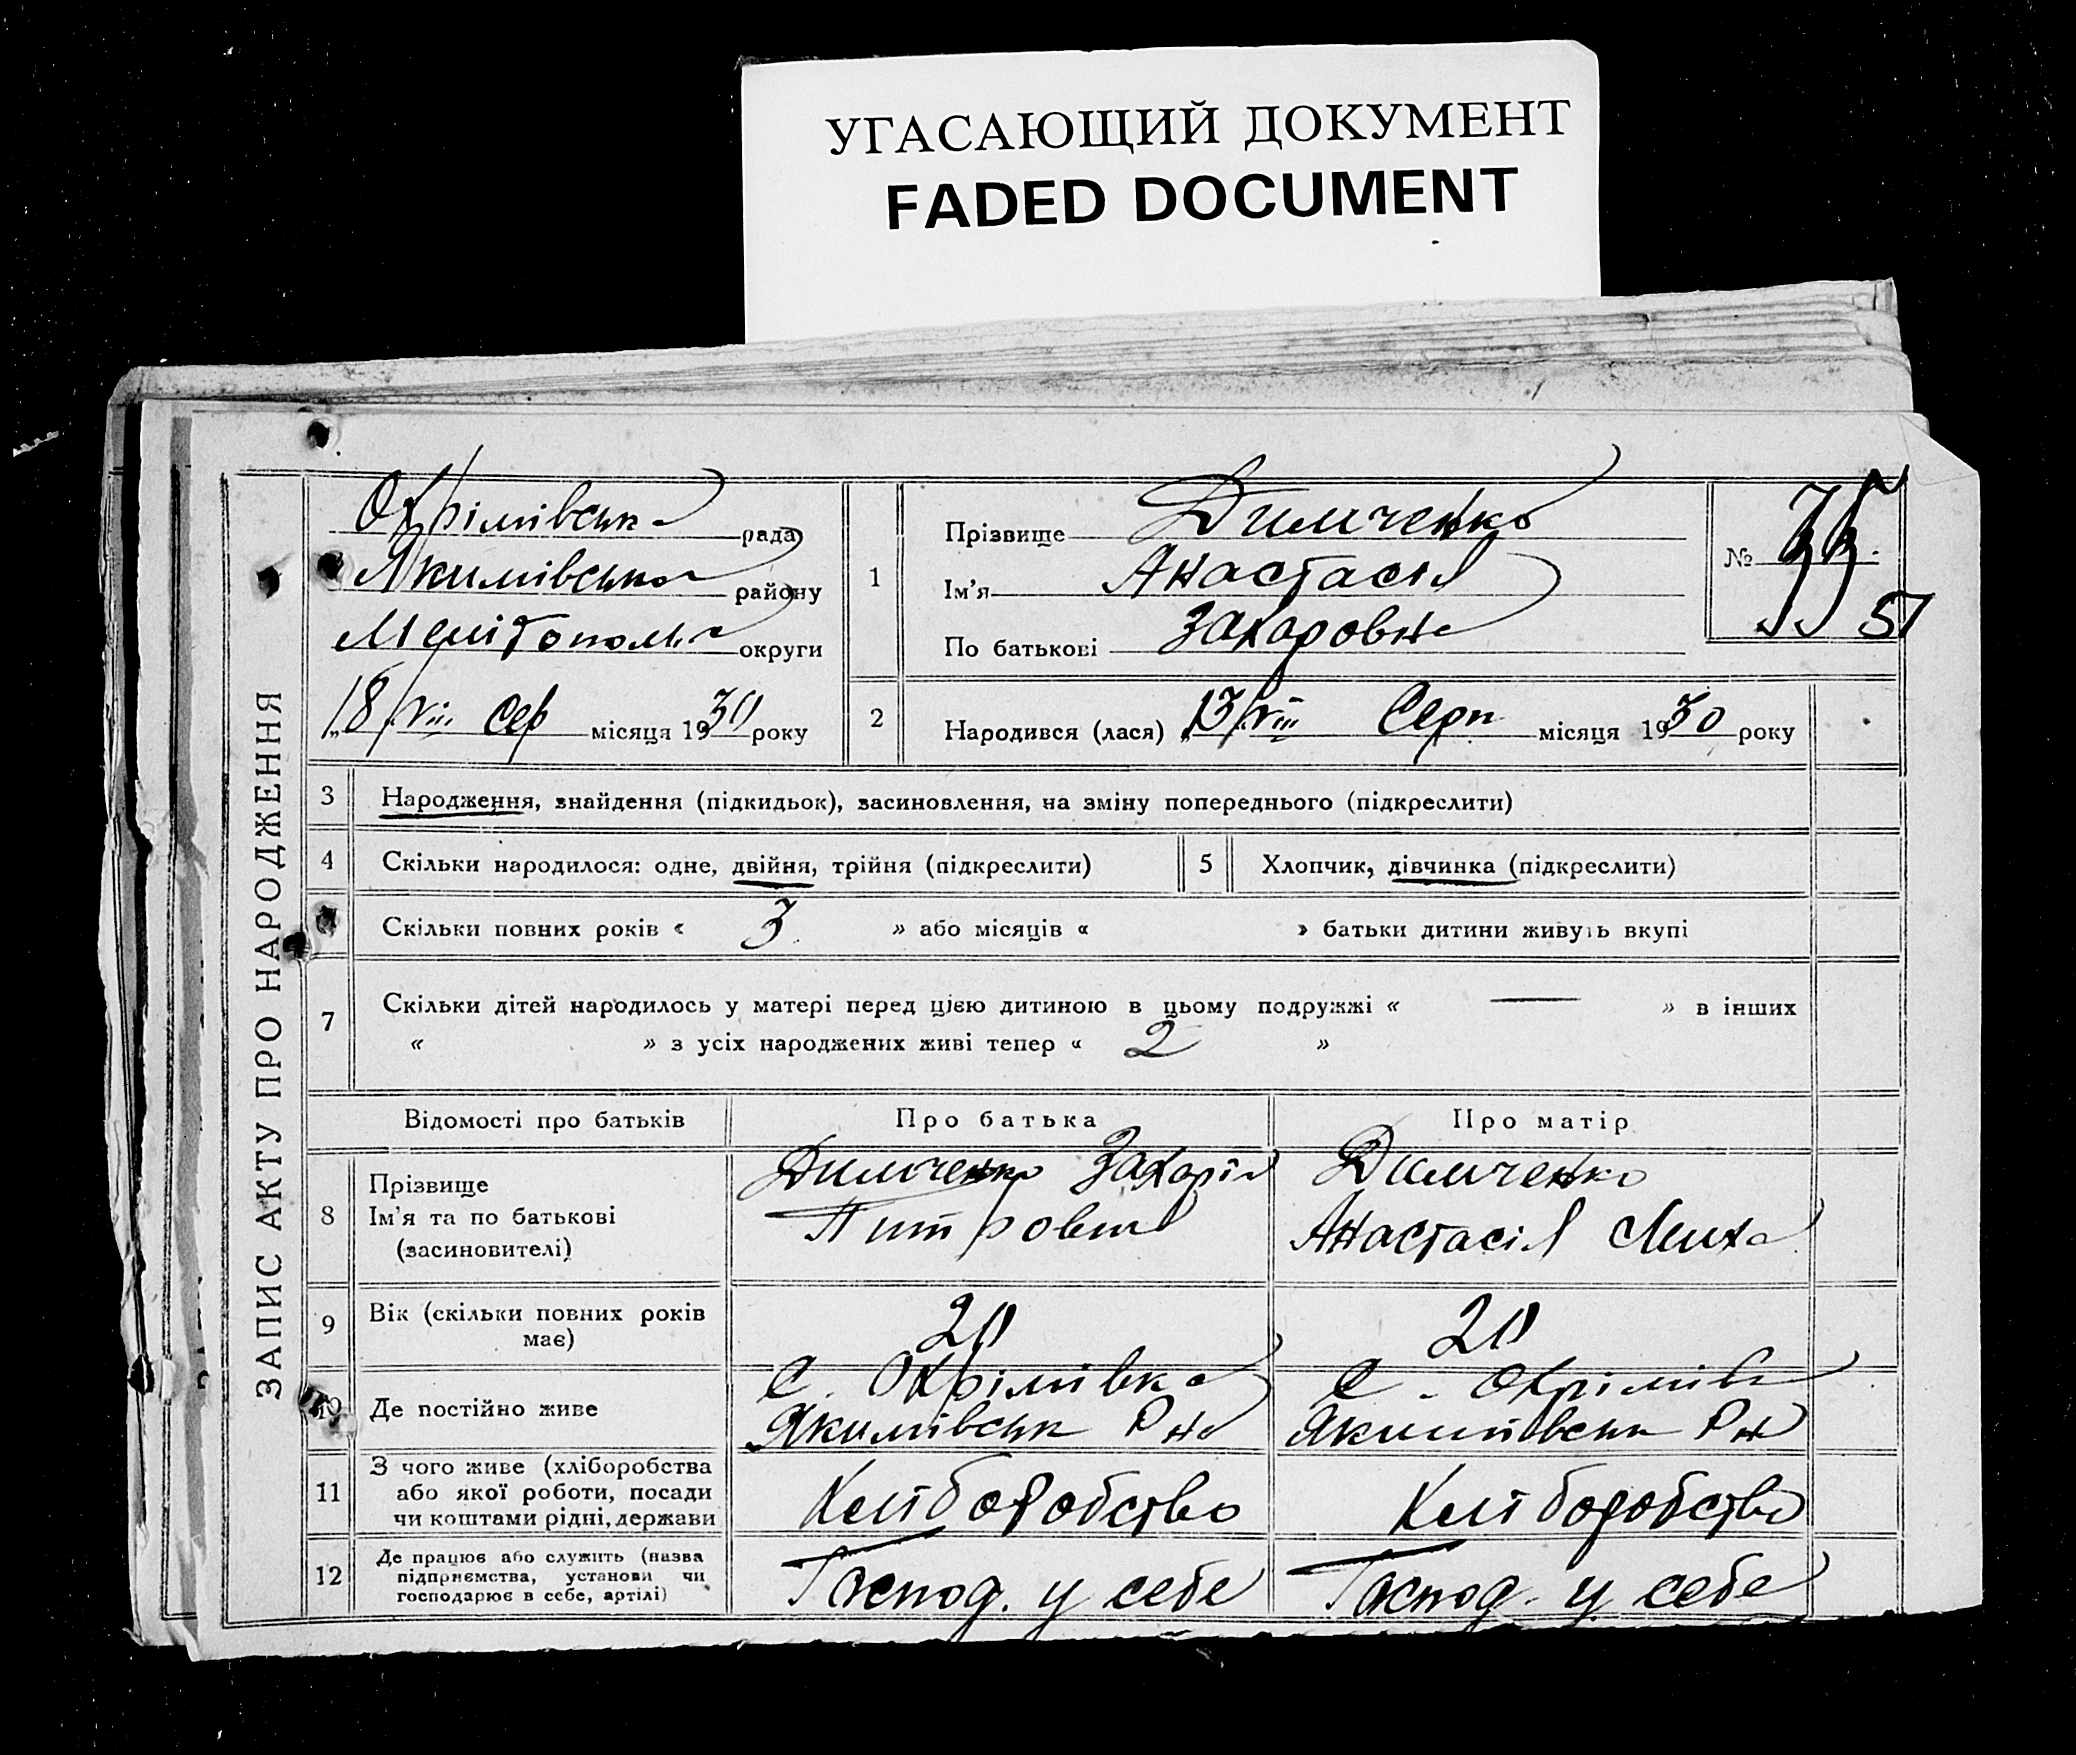 УГАСАЮЩИЙ ДОКУМЕНТ
FADED DOCUMENT
ЗАПИС АКТУ ПРО НАРОДЖЕННЯ
Охрімівська рада
Якимівська району
Мелітополь округи
„18/VIII Сер місяця 1930 року
1
Прізвище Димченко
Ім’я Анастасія
По батькові Захаровна
№
51
2 Народився (лася) „13/VIII Серп місяця 1930 року
3 Народження, знайдення (підкидьок), засиновлення, на зміну попереднього (підкреслити)
4 Скільки народилося: одне, двійня, трійня (підкреслити)
5 Хлопчик, дівчинка (підкреслити)
Скільки повних років « 3 » або місяців « » батьки дитини живуть вкупі
7 Скільки дітей народилось у матері перед цією дитиною в цьому подружжі « — » в інших
« » з усіх народжених живі тепер « 2 »
Відомості про батьків Про батька Про матір
8 Прізвище
Ім’я та по батькові
(засиновителі)
Димченко Захарія
Димченко
Анастасія Миха
9 Вік (скільки повних років має)
20
20
10 Де постійно живе
С. Охрімівка
Якимівськ Рна
С. Охрімівк
Якимівськ Рн
11 З чого живе (хліборобства
або якої роботи, посади
чи коштами рідні, держави
Хліборобство
Хліборобство
12 Де працює або служить (назва
підприємства, установи чи
господарює в себе, артілі)
Господ. у себе
Господ. у себе